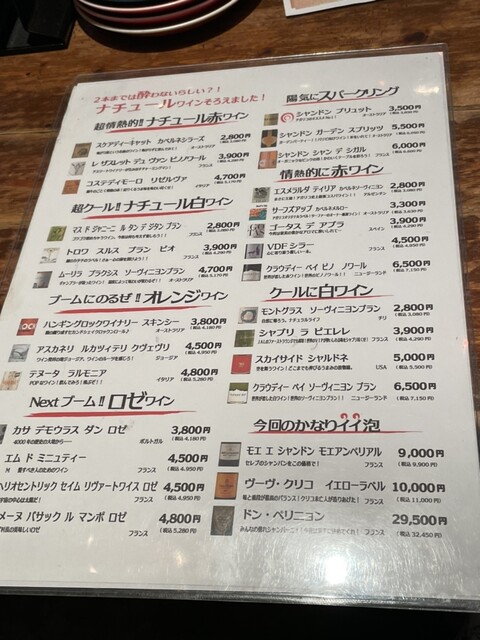 2本までは酔わないらしい？！
ナチュールワインそろえました！
超情熱的!! ナチュール赤ワイン
スケアディーキャット カベルネシラーズ 2,800円
オーストラリア
レ ザスレット デュ ヴァン ピノノワール 3,900円
(税込 4,290円)
フランス
コステディモーロ リゼルヴァ 4,700円
(税込 5,170円)
イタリア
超クール!! ナチュール白ワイン
マス ド ジャニーニ ル タン デ ジタン ブラン 2,800円
(税込 3,080円)
フランス
トロワ スルス ブラン ピオ 3,900円
(税込 4,290円)
フランス
ムーリラ プラクシス ソーヴィニヨンブラン 4,700円
(税込 5,170円)
オーストラリア
ブームにのるぜ!! オレンジワイン
ハンギングロックワイナリー スキンシー 3,800円
(税込 4,180円)
オーストラリア
アスカネリ ルカツィテリ クヴェヴリ 4,500円
(税込 4,950円)
ジョージア
テヌータ ラルモニア 4,800円
(税込 5,280円)
イタリア
Next ブーム!! ロゼワイン
カサ デモクラス ダン ロゼ 3,800円
4000年の歴史の大地から… ポルトガル (税込 4,180円)
エム ド ミニュティー 4,500円
愛すべき人のためのワイン フランス (税込 4,950円)
ヘリオセントリック セイム リヴァートワイス ロゼ 4,500円
宇宙の中心は太陽だ！ フランス (税込 4,950円)
メーヌ パザック ル マンボ ロゼ 4,800円
フランス (税込 5,280円)
陽気にスパークリング
シャンドン ブリュット 3,500円
オーストラリア
シャンドン ガーデン スプリッツ 5,500円
シャンドン シャン デ シガル 6,000円
フランス
情熱的に赤ワイン
エスメラルダ ティリア カベルネソーヴィニヨン 2,800円
(税込 3,080円)
アルゼンチン
サーフズアップ カベルネメルロー 3,300円
(税込 3,630円)
オーストラリア
ゴータス デ アプラ 3,900円
(税込 4,290円)
スペイン
VDF シラー 4,500円
(税込 4,950円)
フランス
クラウディー ベイ ピノ ノワール 6,500円
(税込 7,150円)
ニュージーランド
クールに白ワイン
モントグラス ソーヴィニヨンブラン 2,800円
(税込 3,080円)
チリ
シャブリ ラ ピエレレ 3,900円
(税込 4,290円)
フランス
スカイサイド シャルドネ 5,000円
USA (税込 5,500円)
クラウディー ベイ ソーヴィニヨン ブラン 6,500円
ニュージーランド (税込 7,150円)
今回のかなりイイ泡
モエ エ シャンドン モエアンペリアル 9,000円
セレブのシャンパンをこの価格で！ フランス (税込 9,900円)
ヴーヴ・クリコ イエローラベル 10,000円
フランス (税込 11,000円)
ドン・ペリニョン 29,500円
フランス (税込 32,450円)